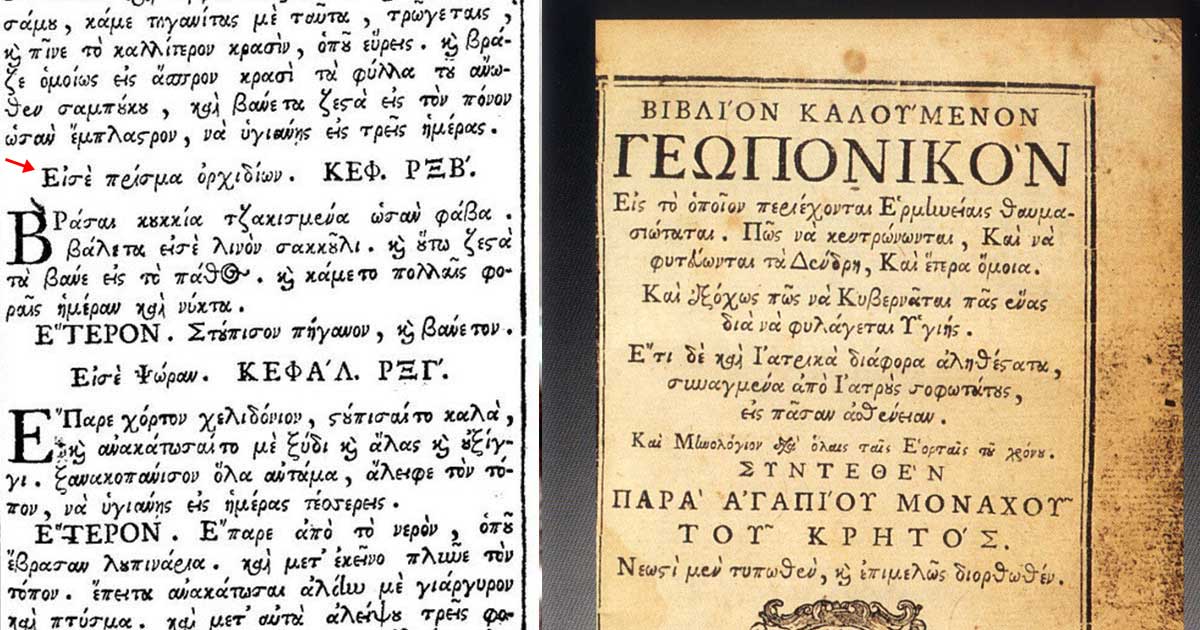 σάμου, κάμε τηγανίτας μὲ τοῦτα, τρῶγεταις,
ϗ πῖνε τὸ καλλίτερον κρασὶν, ὁποῦ εὕρεις. ϗ βρά-
ζε ὁμοίως εἰς ἄσπρον κρασὶ τὰ φύλλα τοῦ ἄνω-
θεν σαμπούκου, καὶ βάνετα ζεστὰ εἰς τὸν πόνον
ὡσὰν ἔμπλαστρον, νὰ ὑγιαίνῃς εἰς τρεῖς ἡμέρας.
Εἰσὲ πρίσμα ὀρχιδίων. ΚΕΦ. ΡΞΒ΄.
ΒΡάσαι κυκκία τζακισμένα ὡσὰν φάβα.
βάλετα εἰσὲ λινὸν σακκοῦλι. ϗ οὕτω ζεστὰ
τὰ βάνε εἰς τὸ πάθος. ϗ κάμετο πολλαῖς φο-
ραῖς ἡμέραν καὶ νύκτα.
ΕʺΤΕΡΟΝ. Στύπισον πήγανον, ϗ βάνετον.
Εἰσὲ Ψώραν. ΚΕΦΑ΄Λ. ΡΞΓ΄.
ΕʺΠαρε χόρτον χελιδόνιον, στύπισαίτο καλὰ,
ϗ ἀνακάτωσαίτο μὲ ξύδι ϗ ἅλας ϗ ὀξίγ-
γι. ξανακοπάνισον ὅλα αὐτάμα, ἄλειφε τὸν τό-
πον, νὰ ὑγιαίνῃς εἰς ἡμέρας τέσσερεις.
ΕʺΤΕΡΟΝ. Εʺπαρε ἀπὸ τὸ νερὸν, ὁποῦ
ἔβρασαν λυπινάρια. καὶ μετ' ἐκεῖνο πλῦνε τὸν
τόπον. ἔπειτα ἀνακάτωσαι ἀλείψου μὲ γιάργυρον
καὶ πτύσμα. καὶ μετ' αὐτὰ ἀλείψου τρεῖς φο-
ΒΙΒΛΙ΄ΟΝ ΚΑΛΟΥ΄ΜΕΝΟΝ
ΓΕΩΠΟΝΙΚΟ`Ν
Εἰς τὸ ὁποῖον περιέχονται Ἑρμηνείαις θαυμα-
σιώταται. Πῶς νὰ κεντρώνωνται, Καὶ νὰ
φυτεύωνται τὰ Δένδρη, Καὶ ἕτερα ὅμοια.
Καὶ ἐξόχως πῶς νὰ Κυβερνᾶται πᾶς ἕνας
διὰ νὰ φυλάγεται Ὑγιής.
Εʺτι δὲ καὶ Ἰατρικὰ διάφορα ἀληθέστατα,
συναγμένα ἀπὸ Ἰατροὺς σοφωτάτους,
εἰς πᾶσαν ἀσθένειαν.
Καὶ Μηνολόγιον μὲ ὅλαις ταῖς Ἑορταῖς τοῦ χρόνου.
ΣΥΝΤΕΘΕ`Ν
ΠΑΡΑ` Ἀ΄ΓΑΠΙ΄ΟΥ ΜΟΝΑΧΟΥ῀
ΤΟΥ῀ ΚΡΗΤΟ΄Σ.
Νεωστὶ μὲν τυπωθὲν, ϗ ἐπιμελῶς διορθωθέν.